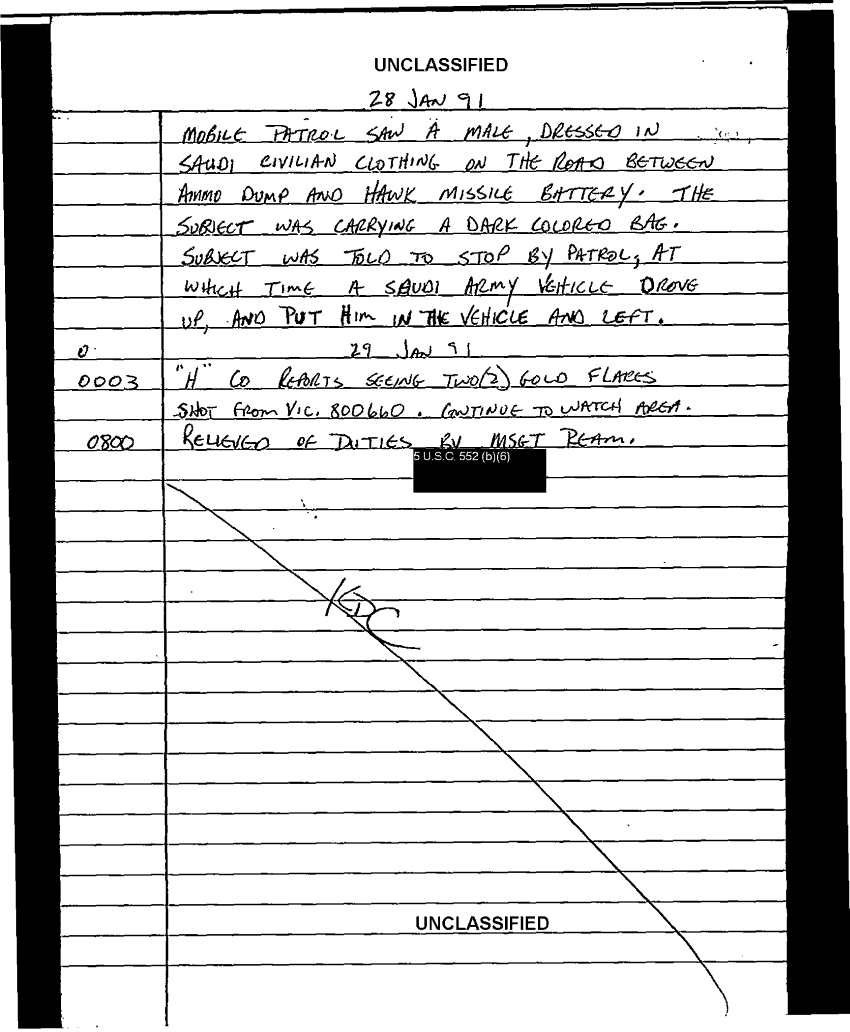 UNCLASSIFIED
28 JAN 91
MOBILE PATROL SAW A MALE, DRESSED IN
SAUDI CIVILIAN CLOTHING ON THE ROAD BETWEEN
AMMO DUMP AND HAWK MISSILE BATTERY. THE
SUBJECT WAS CARRYING A DARK COLORED BAG.
SUBJECT WAS TOLD TO STOP BY PATROL, AT
WHICH TIME A SAUDI ARMY VEHICLE DROVE
UP, AND PUT HIM IN THE VEHICLE AND LEFT.
0 29 JAN 91
0003 "H" CO REPORTS SEEING TWO(2) GOLD FLARES
SHOT FROM VIC. 800660. CONTINUE TO WATCH AREA.
0800 RELIEVED OF DUTIES BY MSGT REAM.
5 U.S.C. 552 (b)(6)
KDC
UNCLASSIFIED